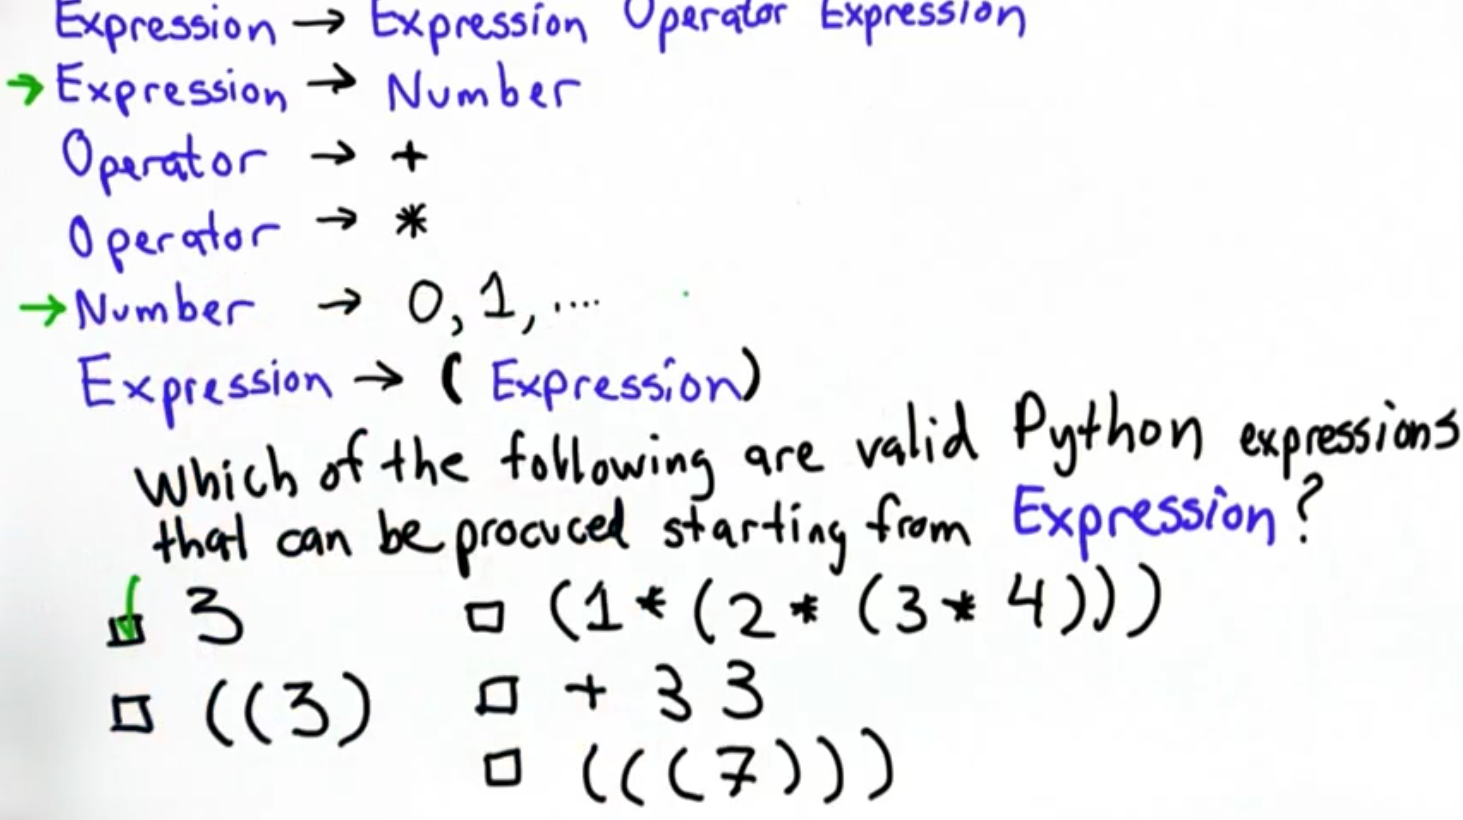 Expression → Expression Operator Expression
→ Expression → Number
Operator → +
Operator → *
→ Number → 0, 1, ....
Expression → ( Expression)
Which of the following are valid Python expressions
that can be procuced starting from Expression?
3 (1 * (2 * (3 * 4)))
((3) + 3 3
(((7)))